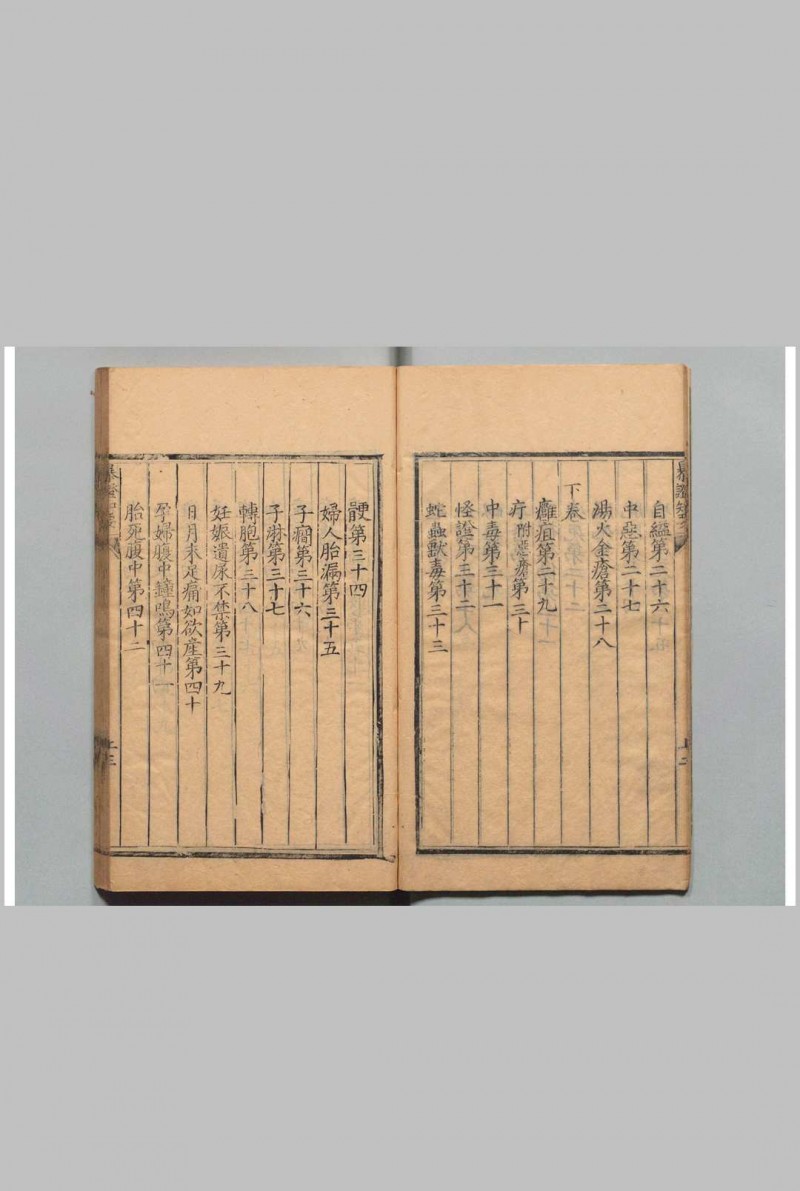 自縊第二十六
中惡第二十七
湯火金瘡第二十八
下卷
癰疽第二十九
疔附惡瘡第三十
中毒第三十一
怪證第三十二
蛇蟲獸毒第三十三
骾第三十四
婦人胎漏第三十五
子癇第三十六
子淋第三十七
轉胞第三十八
妊娠遺尿不禁第三十九
日月未足痛如欲産第四十
孕婦腹中鐘鳴第四十一
胎死腹中第四十二